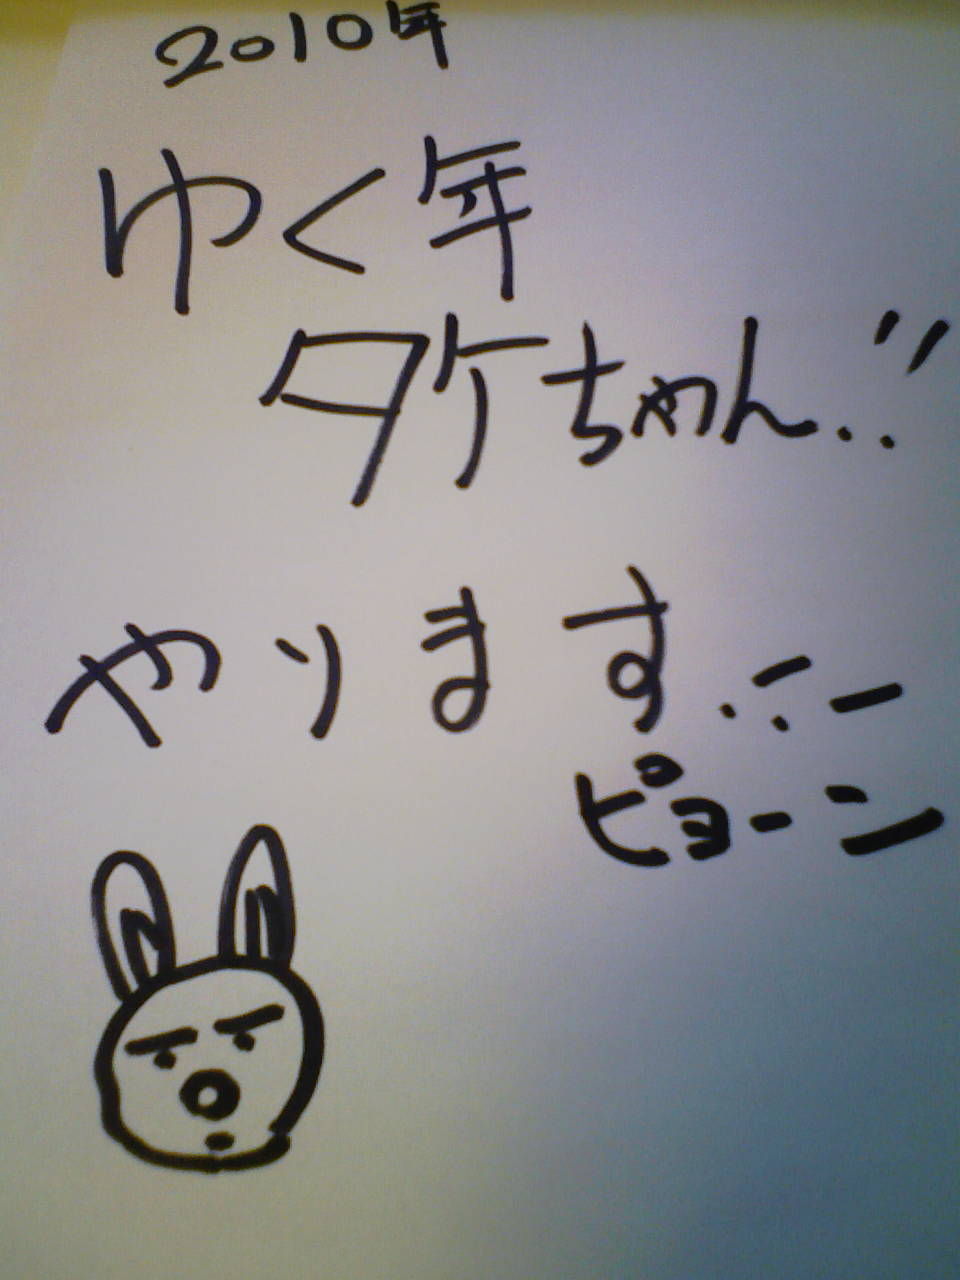 2010年
ゆく年
タケちゃん!!
やります!!
ピョーン